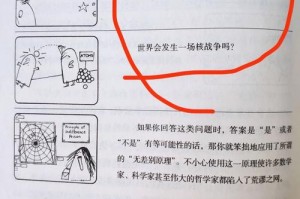 世界会发生一场核战争吗？
如果你回答这类问题时，答案是“是”或者
“不是”有等可能性的话，那你就笨拙地应用了所谓
的“无差别原理”。不小心使用这一原理使许多数学
家、科学家甚至伟大的哲学家都陷入了荒谬之网。